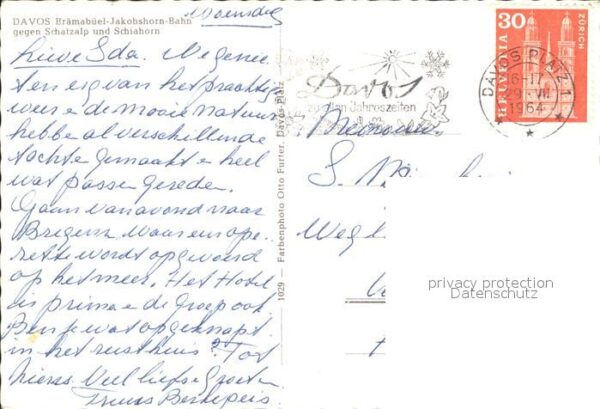 DAVOS Brämabüel-Jakobshorn-Bahn
gegen Schatzalp und Schiahorn
Woensdag
Lieve Sda. We genie
ten erg van het prachtige
weer en de mooie natuur
hebbe al verschillende
tochte gemaakt en heel
wat passen gereden.
Gaan vanavond naar
Bregenz waar een ope-
rette wordt opgevoerd
op het meer. Het Hotel
is prima en de groep ook
Ben je wat opgeknapt
in het rusthuis? Tot
ziens Veel liefs & Groeten
Truus
1029 — Farbenphoto Otto Furter, Davos Platz
Davos
zu allen Jahreszeiten
DAVOS PLATZ 1
16-17
29. VII.
1964
30
HELVETIA
ZÜRICH
Mevrouw
S.
Weg
privacy protection
Datenschutz